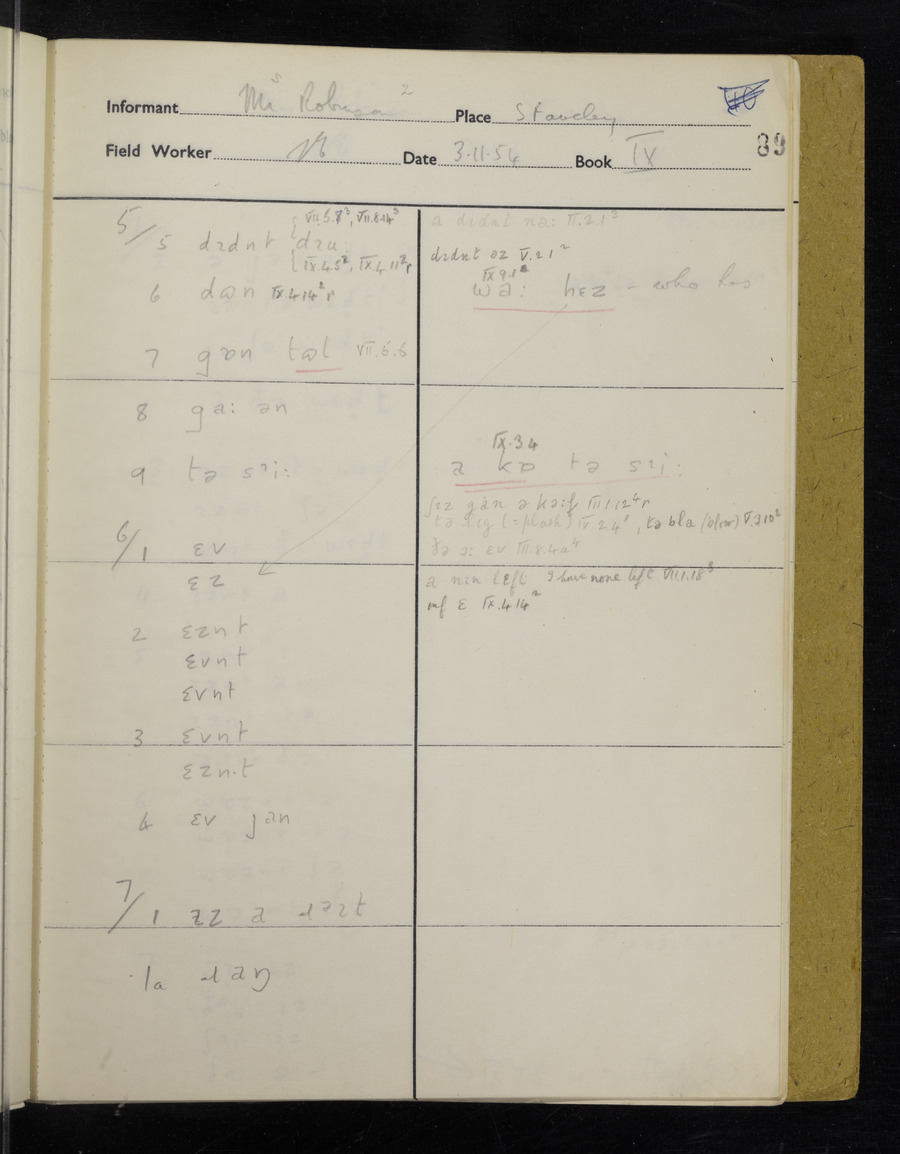 40
Informant Mrs Robinson 2 Place Staveley
89
Field Worker Date 3.11.54 Book IX
5/5 dɪdnt dɪu: VII.5.7³, VII.8.14³
IX.4.5², IX.4.11²r
6 dɒn IX.4.14²r
7 gɒn təl VII.6.6
8 ga: ən
9 tə sɪi:
6/1 ɛv
ɛz
2 ɛznt
ɛvnt
ɛvnt
3 ɛvnt
ɛzn.t
4 ɛv jan
7/1 ɪz a ɹəɪt
1a ɹaŋ
a dɪdnt na: VI.2.1³
dɪdnt əz V.2.1²
IX.9.1²
wa: hɛz - who has
IX.3.4
a kɒ tə sɪi:
ʃɪz gan ə kəɪf III.1.12⁴r
(=plash) IV.2.4¹, tə bla (blow) V.3.10²
ðə ə: ɛv III.8.4a⁴
a nɪn lɛft I have none left VII.1.18³
mf ɛ IX.4.14²